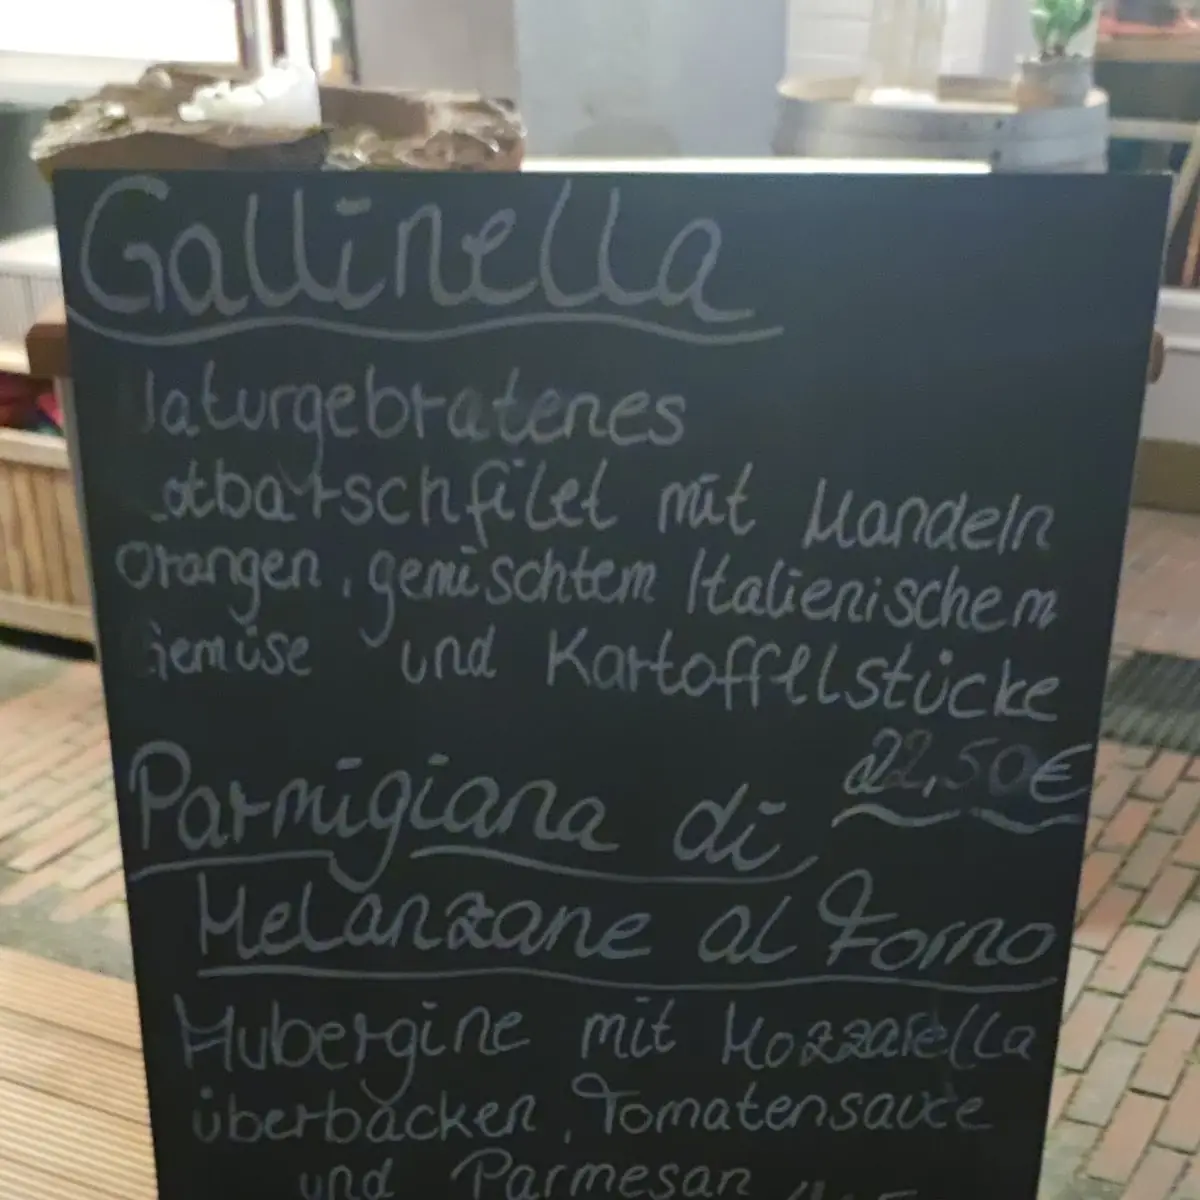 Gallinella
aturgebratenes
otbarschfilet mit Mandeln
Orangen, gemischtem Italienischem
Gemüse und Kartoffelstücke
22,50€
Parmigiana di
Melanzane al Forno
Aubergine mit Mozzarella
überbacken, Tomatensauce
und Parmesan